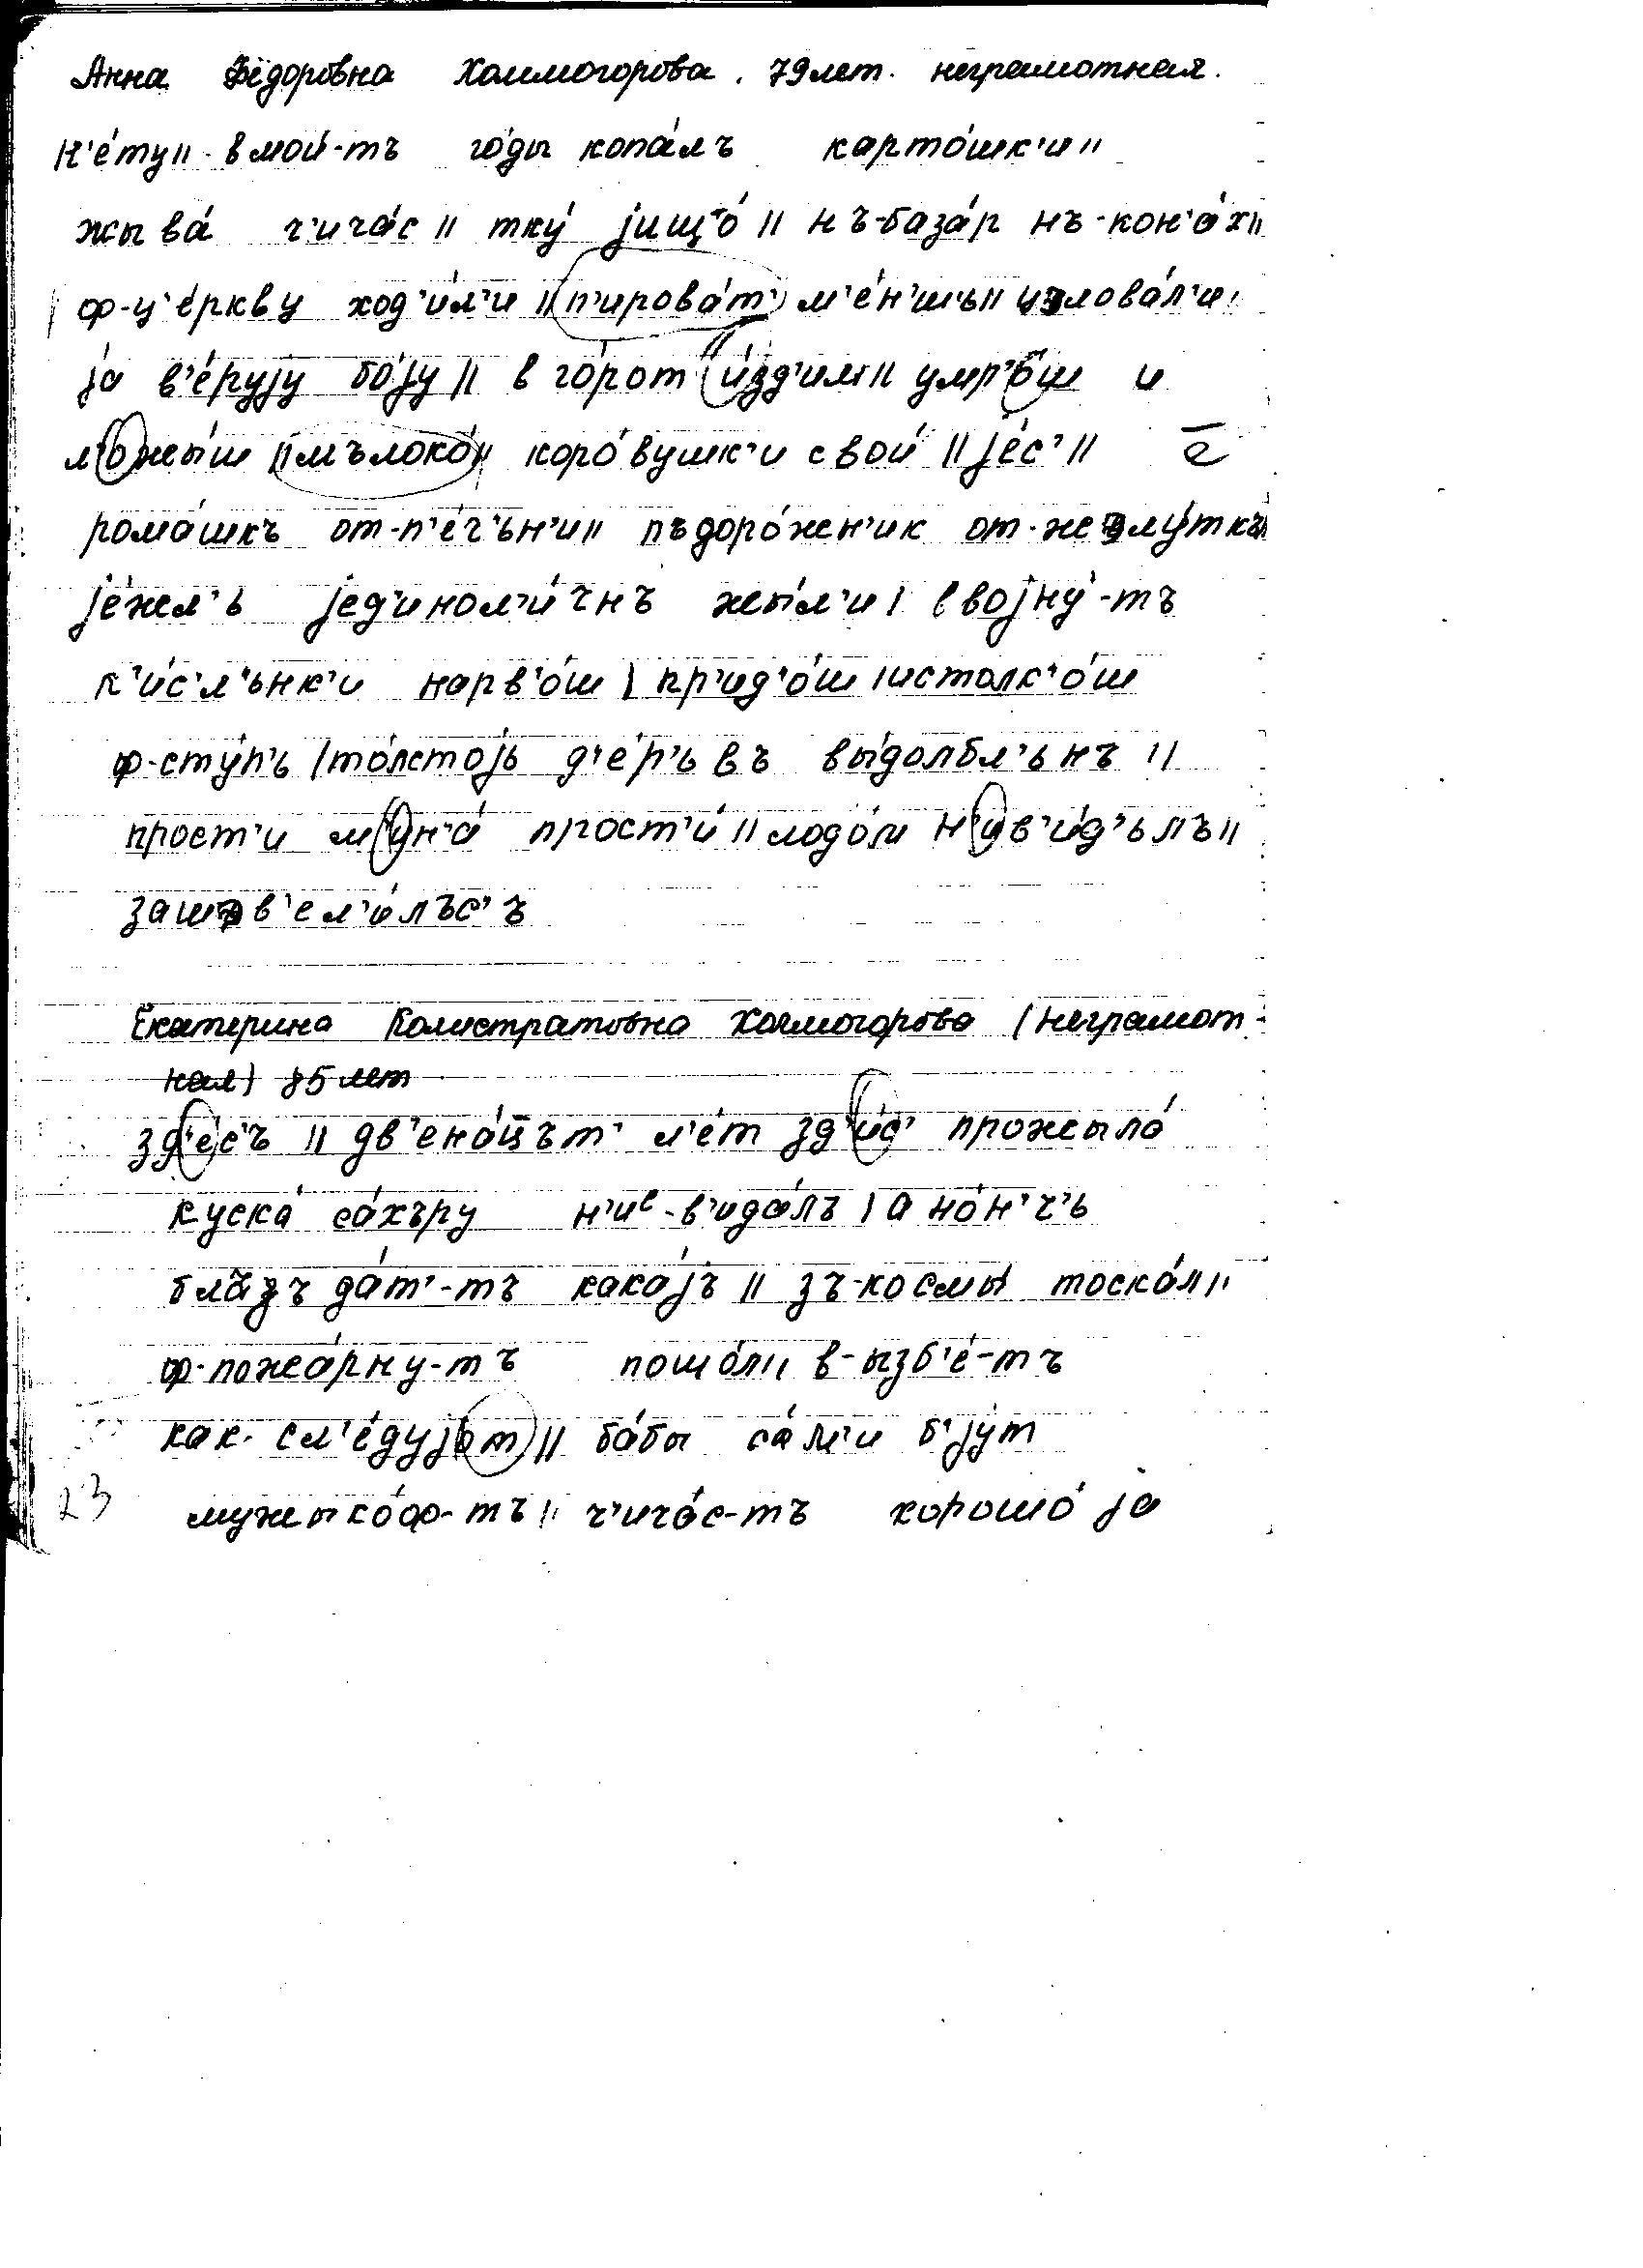 Анна Фёдоровна Холмогорова. 79 лет. неграмотная.
н'е́ту || в мои́-тъ го́ды копа́лъ карто́шк'и ||
жыва́ ч'ича́с || тку́ jищо́ || нъ-база́р нъ-кон'а́х ||
ф-ц'е́ркву ход'и́л'и || п'ирова́т' м'е́н'шъ ||
jа в'е́руjу бо́jу || в го́рот и́зд'им || умр'о́ш и
л'ожы́ш || мълоко́ || коро́вушк'и свои́ || jе́с' ||
рома́шкъ от-п'е́ч'ьн'и || пъдоро́жен'ик от-желу́ткъ
jе́жел'ь jед'инол'и́чнъ жы́л'и | в воjну́-тъ
к'и́с'л'ьнк'и нарв'о́ш | пр'ид'о́ш | истолк'о́ш
ф-сту́п'ь | то́лстоjь д'е́р'ьвъ вы́долбл'ьнъ ||
прост'и м'ин'а́ прост'и́ || лодо́м н'ив'и́д'ълъ ||
зашэв'ел'и́лъс'ъ
Екатерина Калистратовна Холмогорова (неграмот-
ная) 85 лет
зд'ес'ъ || дв'ена́ццът' л'е́т зд'и́с' прожыла́
куска́ са́хъру н'ие-в'ида́лъ | а но́н'ч'ь
бла̄зъ да́т'-тъ кака́jъ || зъ-космы́ тоска́л ||
ф-пожа́рну-тъ пошо́л || в-ызб'е́-тъ
как-сл'е́дуjот || ба́бы са́м'и б'jу́т
мужыко́ф-тъ || ч'ича́с-тъ хорошо́ jа
23